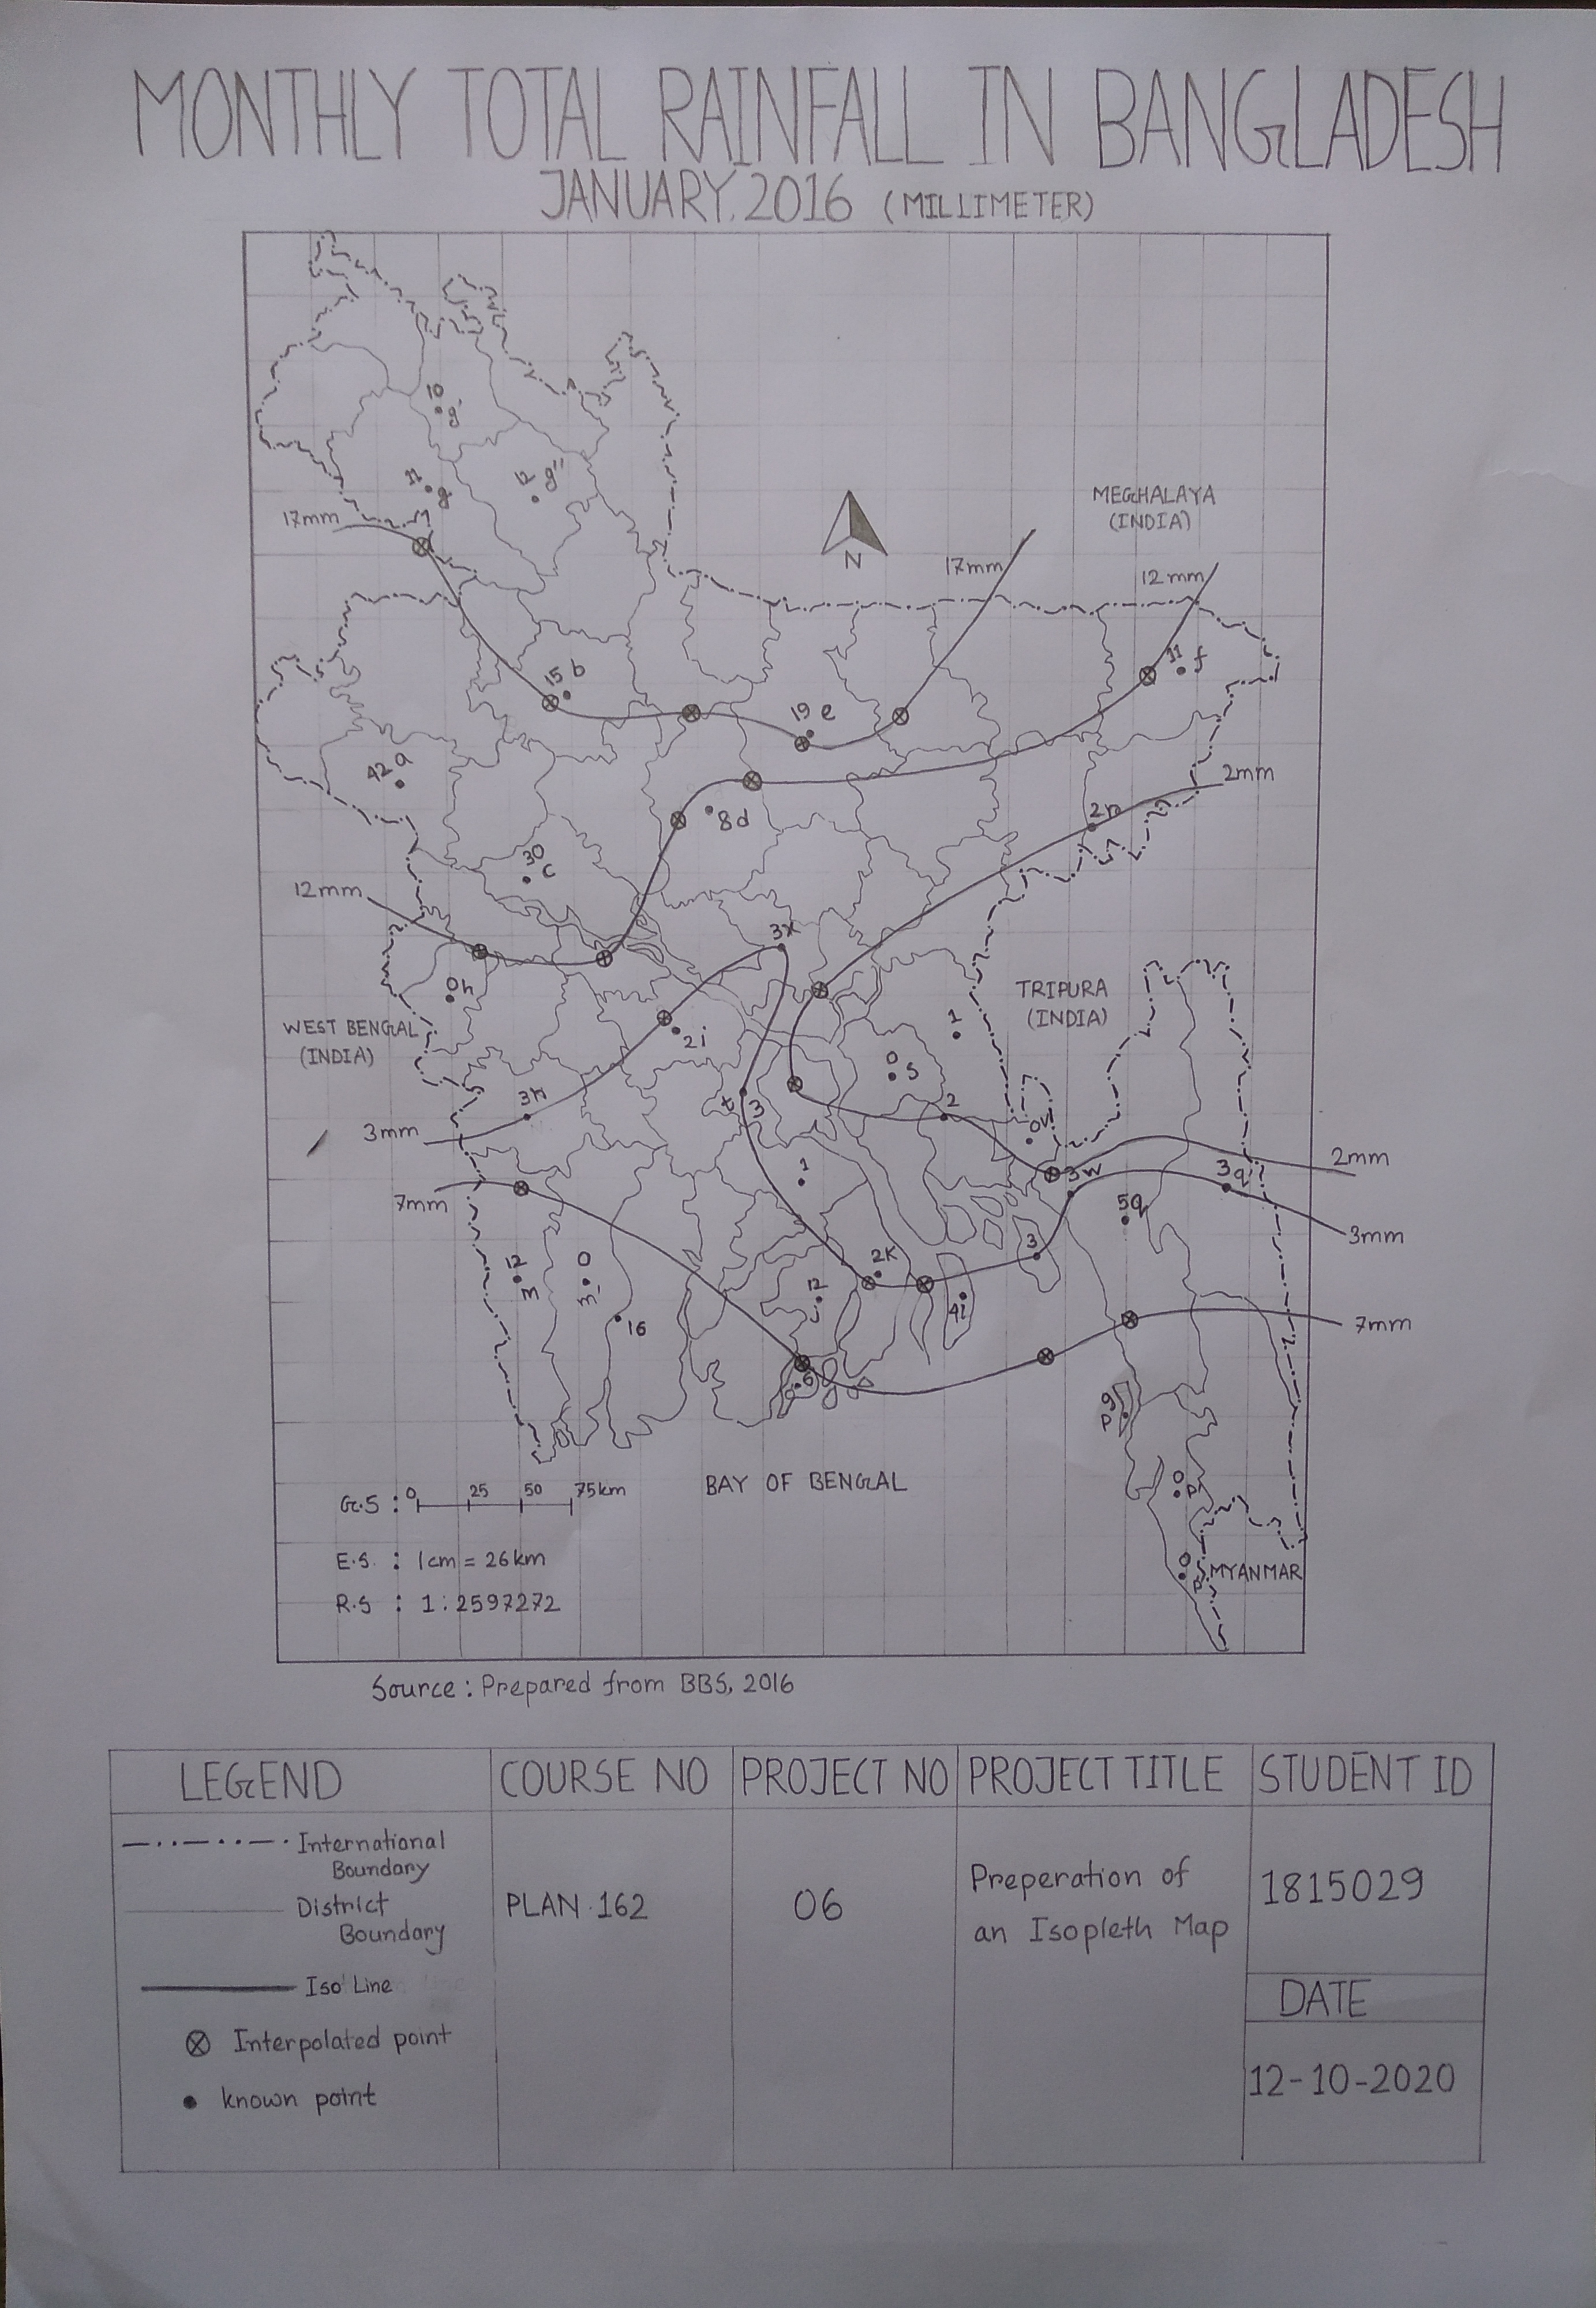 MONTHLY TOTAL RAINFALL IN BANGLADESH
JANUARY, 2016 (MILLIMETER)
10
g'
11
g
12
g"
17mm
MEGHALAYA
(INDIA)
N
17mm
12mm
15 b
19 e
11 f
42 a
8d
2mm
2n
30
c
12mm
3x
0h
WEST BENGAL
(INDIA)
TRIPURA
(INDIA)
2i
1
0
s
3h
t 3
2
0v
3mm
2mm
3w
3
q'
7mm
1
5q
3mm
12
m
0
2k
3
12
j
4i
16
7mm
6
9
p
G.S : 0 25 50 75km
BAY OF BENGAL
0
p
E.S. : 1cm = 26km
0
MYANMAR
R.S : 1:2597272
Source : Prepared from BBS, 2016
LEGEND COURSE NO PROJECT NO PROJECT TITLE STUDENT ID
International
Boundary
District
Boundary
Iso Line
Interpolated point
known point
PLAN 162
06
Preperation of
an Isopleth Map
1815029
DATE
12-10-2020